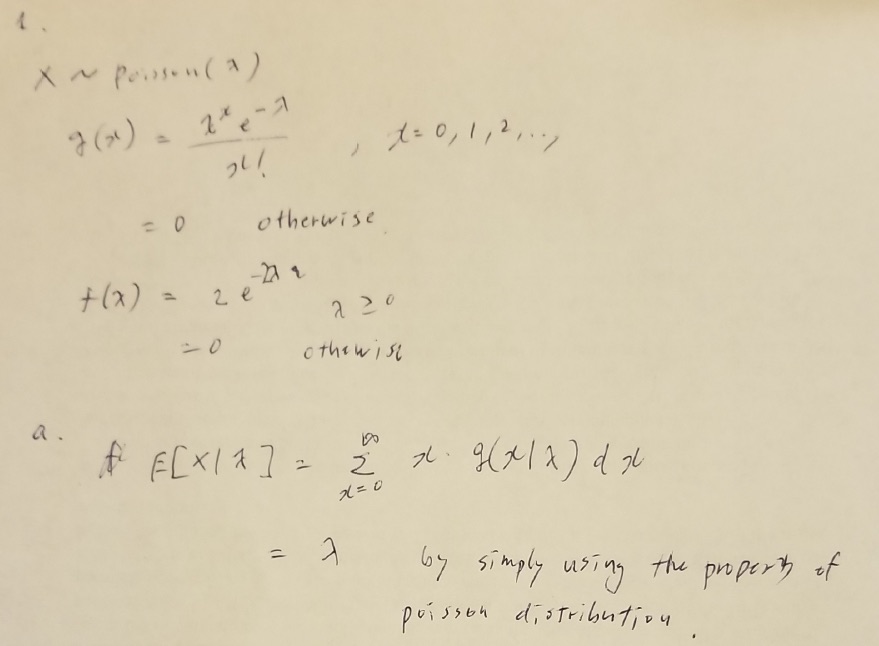 1.
X ~ poisson(λ)
g(x) = λ^x e^-λ / x! , x = 0, 1, 2, ...,
= 0 otherwise.
f(λ) = 2 e^-2λ λ ≥ 0
= 0 otherwise
a. E[X|λ] = ∑_{x=0}^{∞} x · g(x|λ) dx
= λ by simply using the property of
poisson distribution.